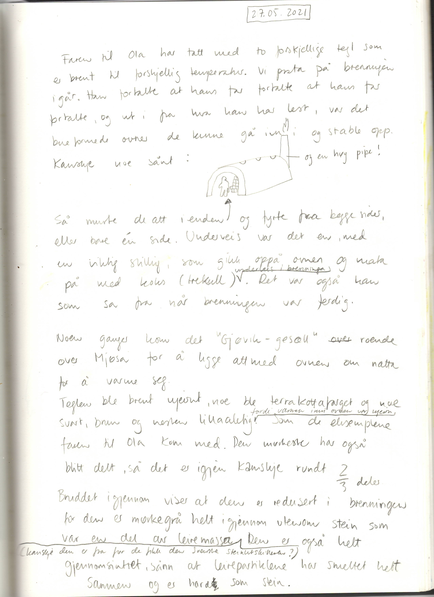 27.05.2021
Faren til Ola har tatt med to forskjellige tegl som
er brent til forskjellig temperatur. Vi prata på brenningen
igår. Han fortalte at hans far fortalte at hans far
fortalte, og ut i fra hva han har lest, var det
bueformede ovner de kunne gå inn i og stable opp.
Kanskje noe sånt:
og en høy pipe!
Så murte de att i enden og fyrte fra begge sider,
eller bare én side. Underveis var det en, med
en viktig stilling, som gikk oppå ovnen og mata
underveis i brenninga
på med koks (trekull). Det var også han
som sa fra når brenningen var ferdig.
Noen ganger kom det "Gjøvik-gesell" over roende
over Mjøsa for å ligge attmed ovnen om natta
for å varme seg.
Teglen ble brent ujevnt, noe ble terrakottafarget og noe
fordi varmen inni ovnen var ujevn
svart, brun og nesten lilla som de eksemplene
faren til Ola kom med. Den mørkeste har også
blitt delt, så det er igjen kanskje rundt 2/3 deler
Bruddet igjennom viser at den er redusert i brenningen
for den er mørkegrå helt igjennom utenom stein som
var en del av leiremassen. Den er også helt
(kanskje den er fra
gjennomsintret, sånn at leirepartiklene har smeltet helt
sammen og er hard som stein.